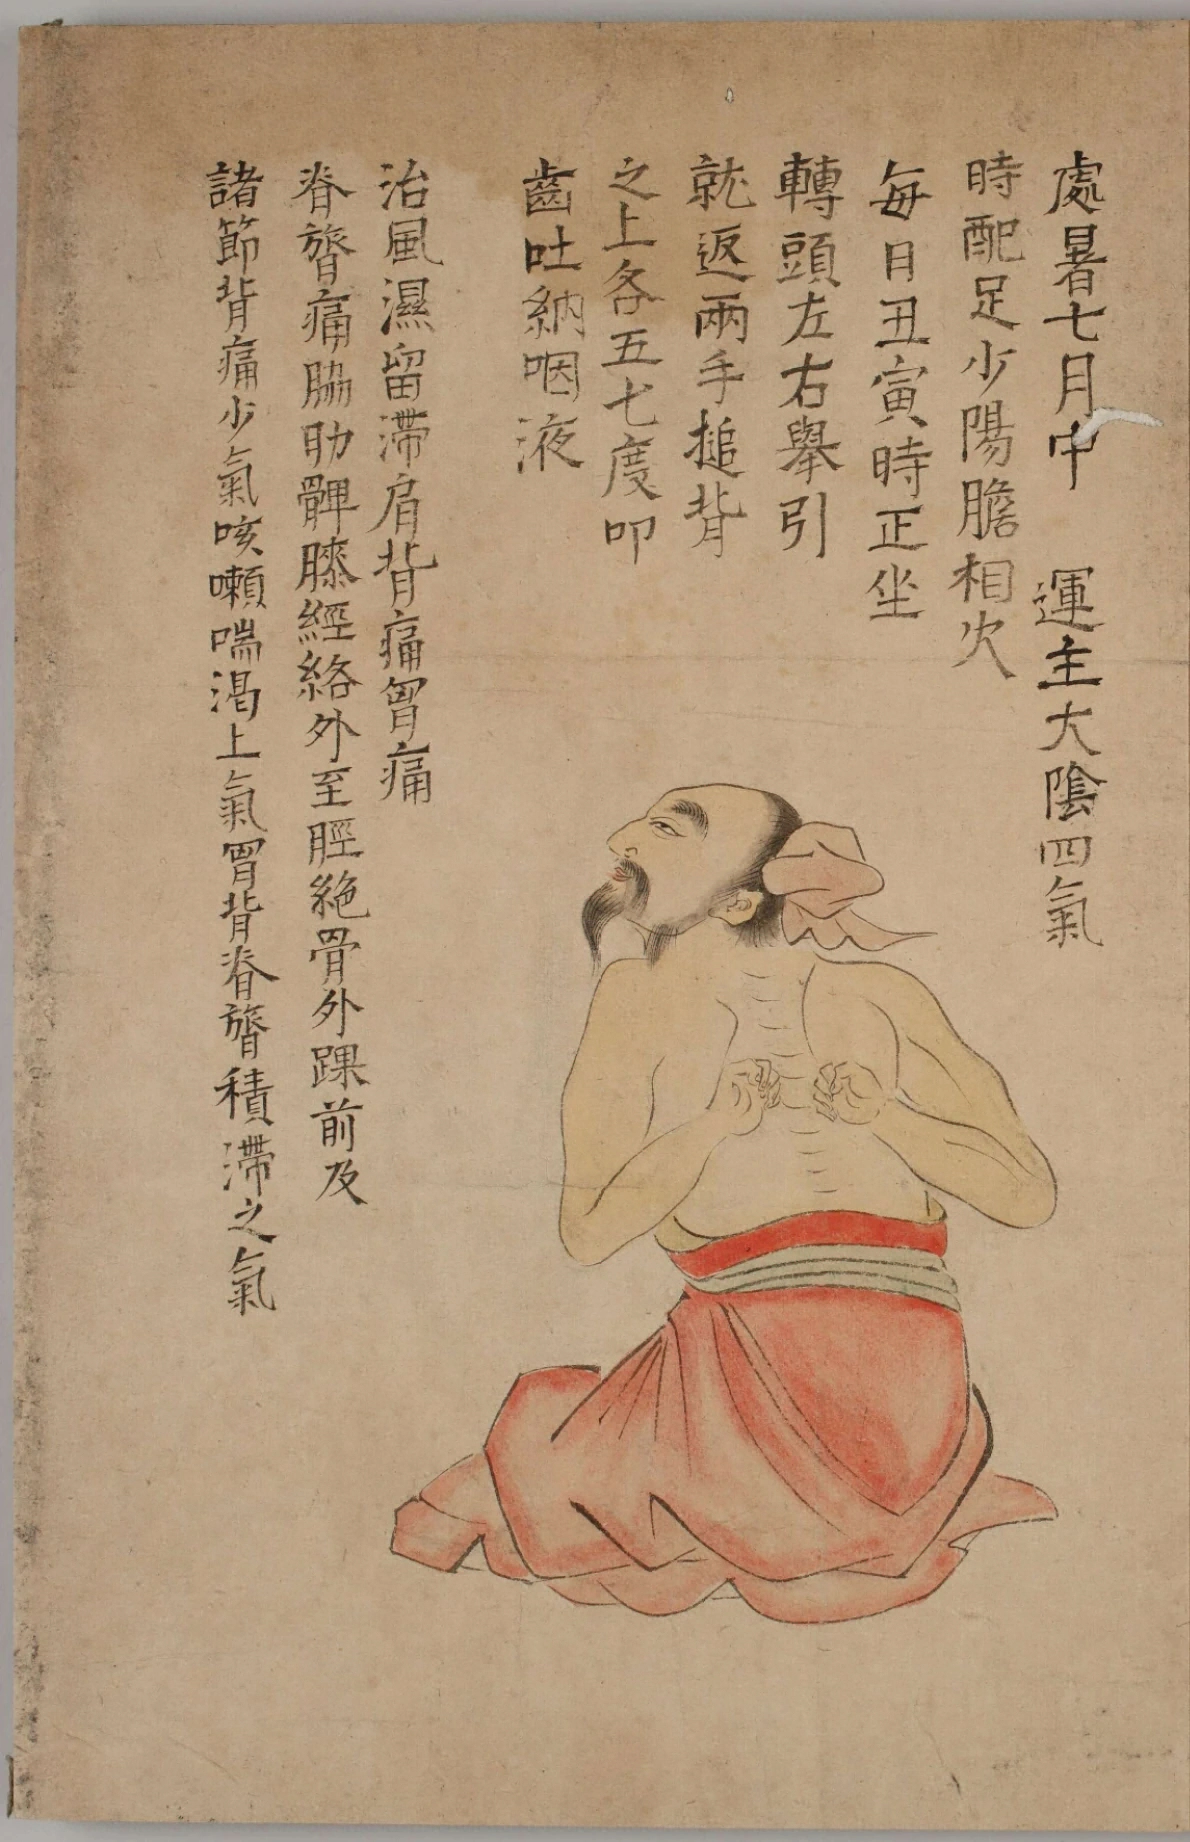 處暑七月中　運主大陰四氣
時配足少陽膽相火
每日丑寅時正坐
轉頭左右舉引
就返兩手搥背
之上各五七度叩
齒吐納咽液
治風濕留滯肩背痛胷痛
脊膂痛脇肋髀膝經絡外至脛絶骨外踝前及
諸節背痛少氣咳嗽喘渴上氣胷背脊膂積滯之氣